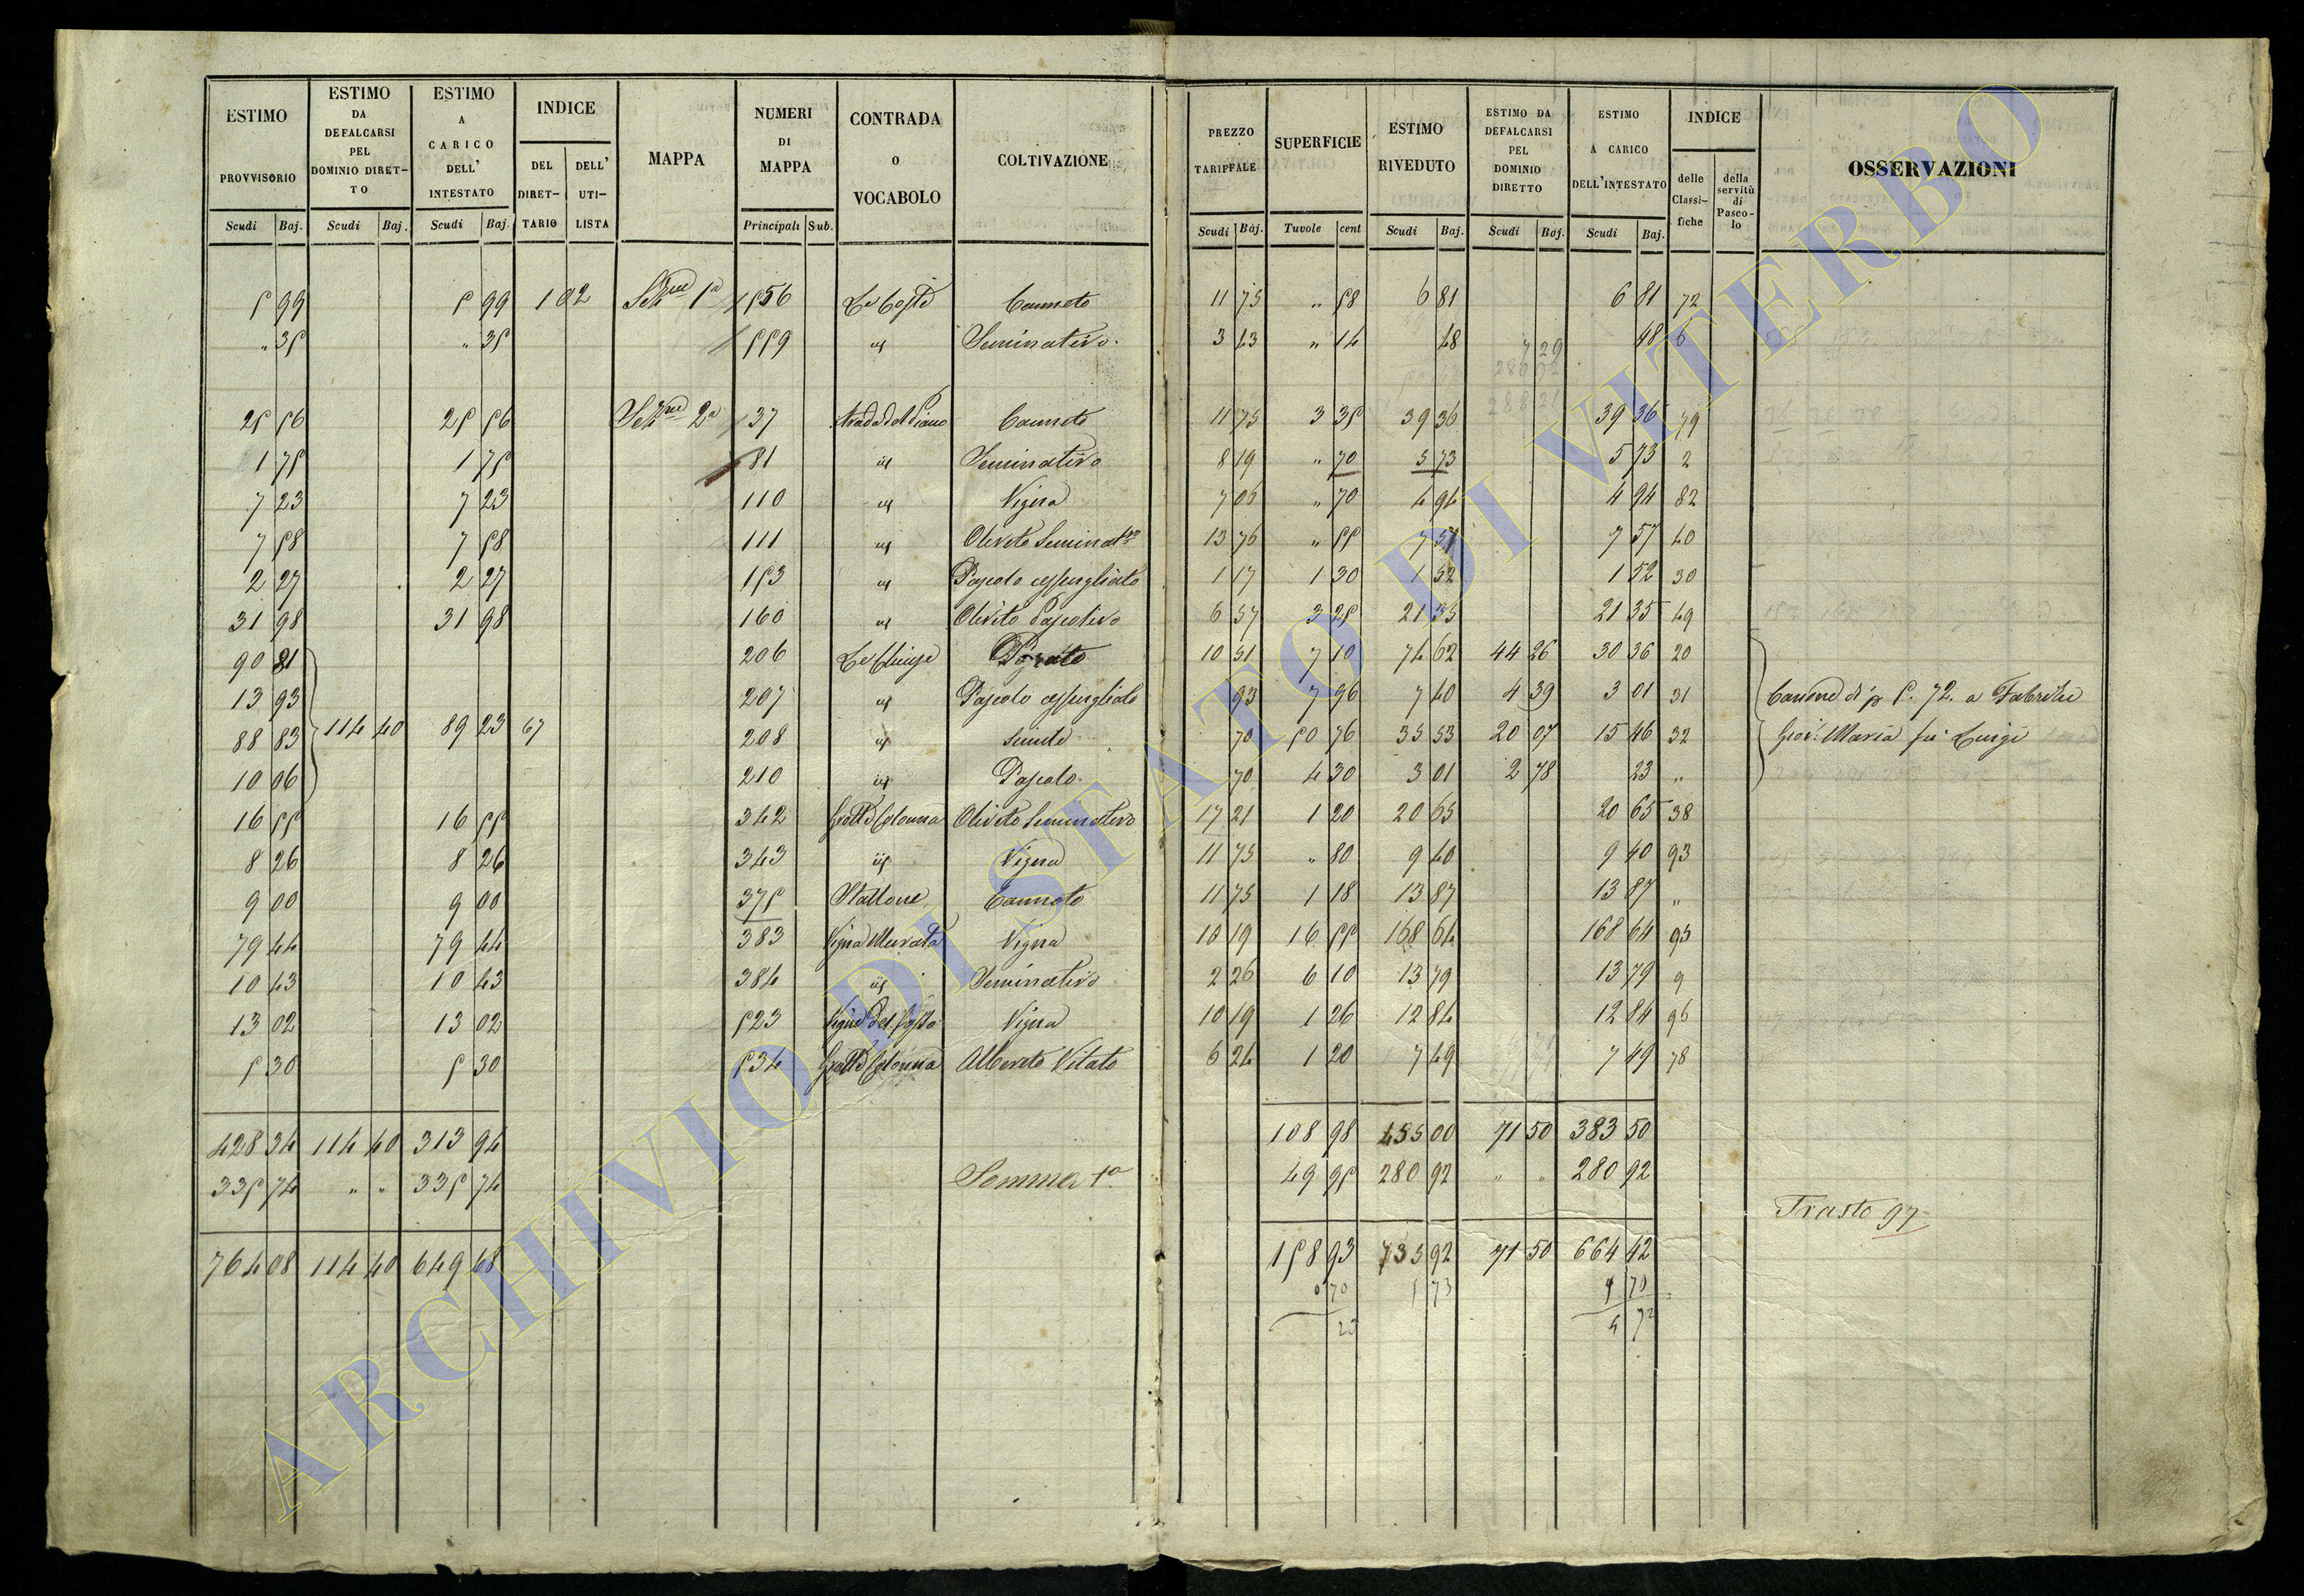 ESTIMO PROVVISORIO | ESTIMO DA DEFALCARSI PEL DOMINIO DIRET-TO | ESTIMO A CARICO DELL' INTESTATO | INDICE DEL DIRET-TARIO | DELL' UTI-LISTA | MAPPA | NUMERI DI MAPPA | CONTRADA O VOCABOLO | COLTIVAZIONE | PREZZO TARIFFALE | SUPERFICIE | ESTIMO RIVEDUTO | ESTIMO DA DEFALCARSI PEL DOMINIO DIRETTO | ESTIMO A CARICO DELL'INTESTATO | INDICE delle Classi-fiche | della servitù di Pasco-lo | OSSERVAZIONI
Scudi Baj. | Scudi Baj. | Scudi Baj. | Principali Sub. | Scudi Baj. | Tavole cent | Scudi Baj. | Scudi Baj. | Scudi Baj.
5 99 | 5 99 | 102 | Sezne 1a | 1556 | Le Coste | Canneto | 11 75 | " 58 | 6 81 | 6 81 | 72
" 35 | " 35 | 1559 | id | Seminativo | 3 43 | " 14 | 48 | 48 | 6
25 56 | 25 56 | Sezne 2a | 37 | Strada del Piano | Canneto | 11 75 | 3 35 | 39 36 | 39 36 | 79
1 75 | 1 75 | 81 | id | Seminativo | 8 19 | " 70 | 5 73 | 5 73 | 2
7 23 | 7 23 | 110 | id | Vigna | 7 05 | " 70 | 4 94 | 4 94 | 82
7 58 | 7 58 | 111 | id | Oliveto Seminatvo | 13 76 | " 55 | 7 57 | 7 57 | 40
2 27 | 2 27 | 153 | id | Pascolo cespugliato | 1 17 | 1 30 | 1 52 | 1 52 | 30
31 98 | 31 98 | 160 | id | Oliveto Pascolivo | 6 57 | 3 25 | 21 35 | 21 35 | 49
90 81 | 206 | Le Chiuse | Prato | 10 51 | 7 10 | 74 62 | 44 26 | 30 36 | 20
13 93 | 207 | id | Pascolo cespugliato | 93 | 7 96 | 7 40 | 4 39 | 3 01 | 31 | Canone di p 5. 72. a Fabrizi
88 83 | 114 40 | 89 23 | 67 | 208 | id | simile | 70 | 50 76 | 35 53 | 20 07 | 15 46 | 32 | Gioi: Maria fu Luigi
10 06 | 210 | id | Pascolo | 70 | 4 30 | 3 01 | 2 78 | 23 | "
16 55 | 16 55 | 342 | Grotte Colonna | Oliveto Seminativo | 17 21 | 1 20 | 20 65 | 20 65 | 38
8 26 | 8 26 | 343 | id | Vigna | 11 75 | " 80 | 9 40 | 9 40 | 93
9 00 | 9 00 | 375 | Stallone | Canneto | 11 75 | 1 18 | 13 87 | 13 87 | "
79 44 | 79 44 | 383 | Vigna Murata | Vigna | 10 19 | 16 55 | 168 64 | 168 64 | 95
10 43 | 10 43 | 384 | id | Seminativo | 2 26 | 6 10 | 13 79 | 13 79 | 9
13 02 | 13 02 | 523 | Vigna | 10 19 | 1 26 | 12 84 | 12 84 | 96
5 30 | 5 30 | 534 | Grotte Colonna | Alberato Vitato | 6 24 | 1 20 | 7 49 | 7 49 | 78
428 34 | 114 40 | 313 94 | 108 98 | 455 00 | 71 50 | 383 50
335 74 | " " | 335 74 | Somma 1a | 49 95 | 280 92 | " " | 280 92
Trasto 97
764 08 | 114 40 | 649 68 | 158 93 | 735 92 | 71 50 | 664 42
0 70 | 5 73
ARCHIVIO DI STATO DI VITERBO